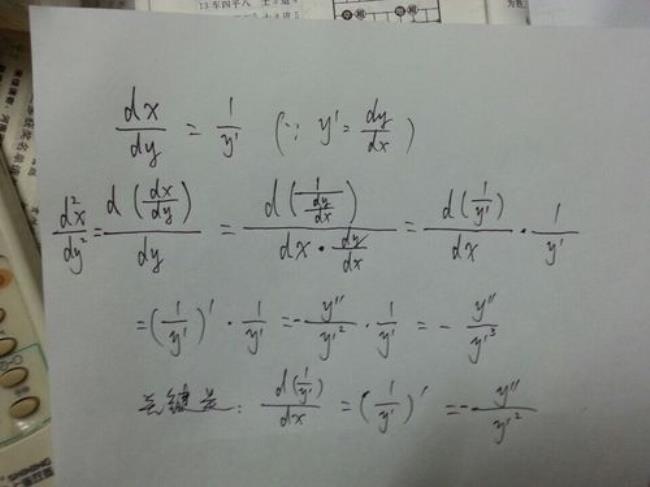 13.车四平八 士
dx/dy = 1/y' (∵ y' = dy/dx)
d²x/dy² = d(dx/dy)/dy = d(1/(dy/dx))/(dx·dy/dx) = d(1/y')/dx · 1/y'
= (1/y')' · 1/y' = -y''/y'² · 1/y' = - y''/y'³
关键是: d(1/y')/dx = (1/y')' = -y''/y'²